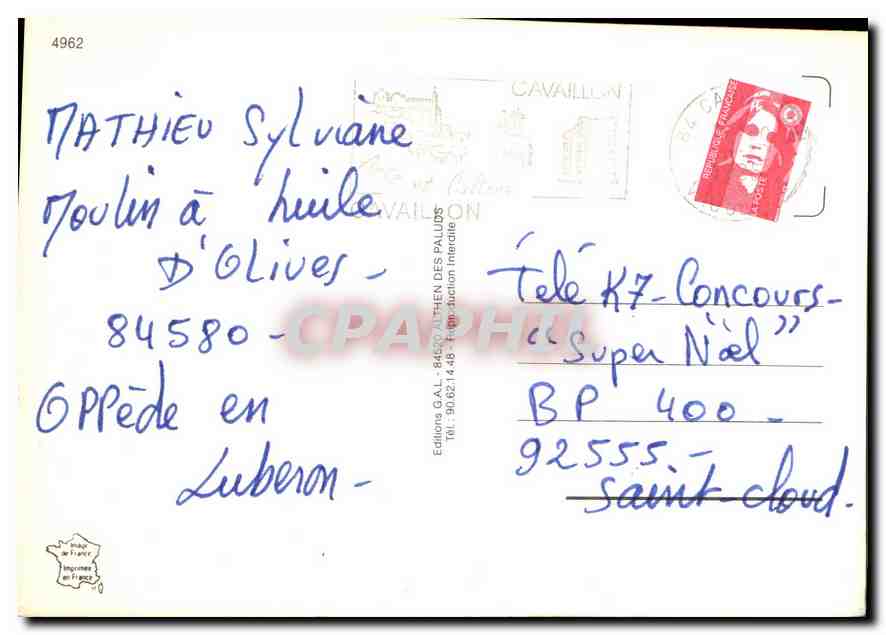 4962
MATHIEU Sylviane
Moulin à huile
D'Olives -
84580 -
Oppède en
Luberon -
CAVAILLON
CAVAILLON
RÉPUBLIQUE FRANÇAISE
LA POSTE
Editions G.A.L. - 84520 ALTHEN DES PALUDS
Tél.: 90.62.14.48 - Reproduction Interdite
Télé K7 - Concours -
"Super Noël"
BP 400 -
92555 -
Saint-Cloud.
CPAPHIL
Image
de France
Imprimée
en France